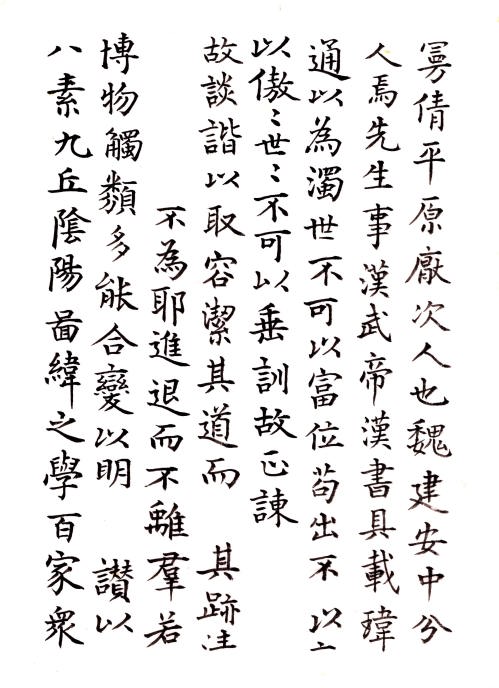 曼倩平原厭次人也魏建安中分
人焉先生事漢武帝漢書具載瑋
通以為濁世不可以富位苟出不 以
以傲〻世〻不可以垂訓故正諫
故談諧以取容潔其道而 其跡
不為耶進退而不離羣若
博物觸類多能合變以明 讃以
八素九丘陰陽啚緯之學百家衆